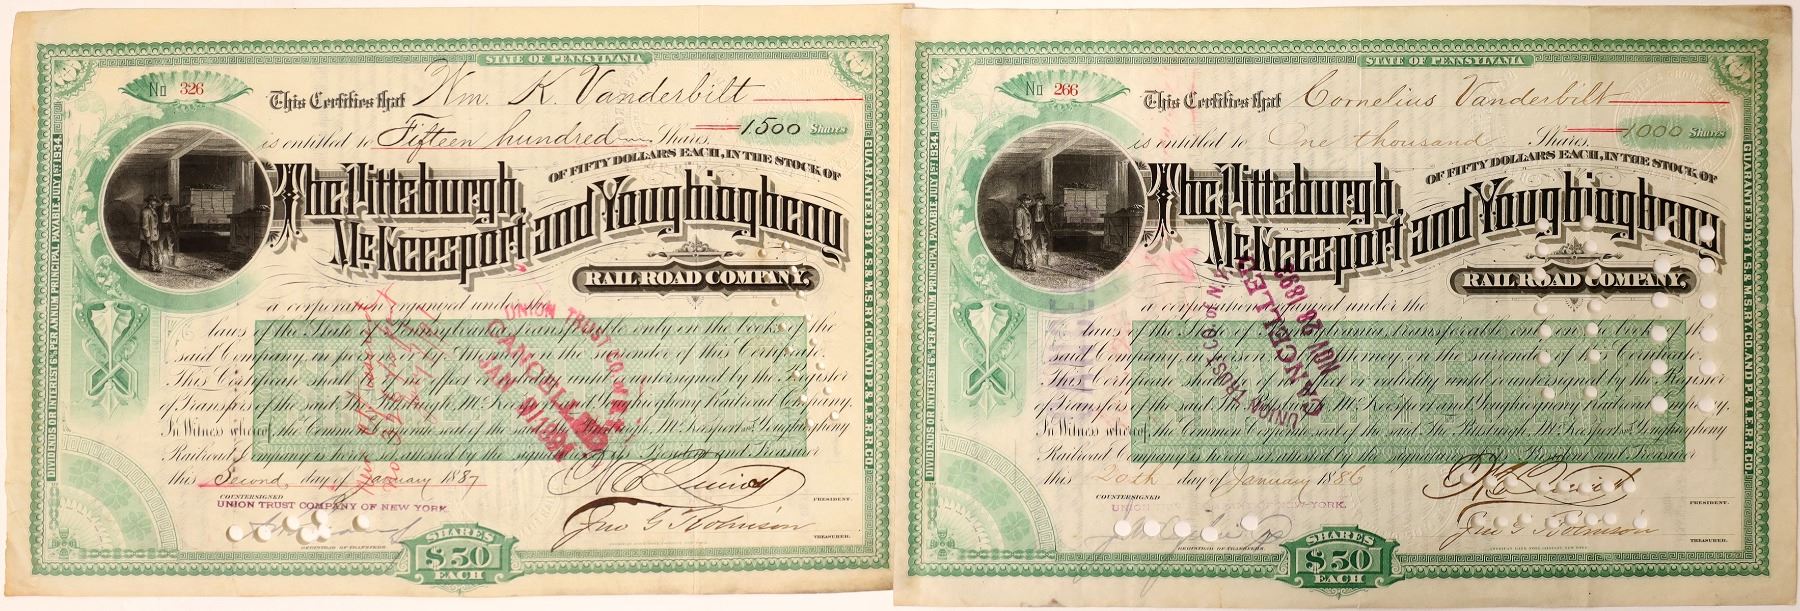 STATE OF PENNSYLVANIA
No 326
This Certifies that Wm. K. Vanderbilt
is entitled to Fifteen hundred Shares. 1500 Shares
OF FIFTY DOLLARS EACH, IN THE STOCK OF
The Pittsburgh,
McKeesport and Youghiogheny
RAILROAD COMPANY,
a corporation organized under the
laws of the State of Pennsylvania, transferable only on the books of the
said Company, in person or by Attorney on the surrender of this Certificate.
This Certificate shall be of no effect or validity until countersigned by the Register
of Transfers of the said The Pittsburgh, McKeesport and Youghiogheny Railroad Company.
In Witness whereof, the Common Corporate seal of the said The Pittsburgh, McKeesport and Youghiogheny
Railroad Company is hereto attached by the signatures of its President and Treasurer
this Second day of January 1887
COUNTERSIGNED
UNION TRUST COMPANY OF NEW YORK.
PRESIDENT.
Jno G Robinson
TREASURER.
REGISTRAR OF TRANSFERS
SHARES
$50
EACH
DIVIDENDS OR INTEREST 6% PER ANNUM PRINCIPAL PAYABLE JULY 1ST 1934.
GUARANTEED BY L.S. & M.S. RY. CO. AND P. & L.E. R.R. CO.
UNION TRUST CO. N.Y.
CANCELLED
STATE OF PENNSYLVANIA
No 266
This Certifies that Cornelius Vanderbilt
is entitled to One thousand Shares. 1000 Shares
OF FIFTY DOLLARS EACH, IN THE STOCK OF
The Pittsburgh,
McKeesport and Youghiogheny
RAILROAD COMPANY,
a corporation organized under the
laws of the State of Pennsylvania, transferable only on the books of the
said Company, in person or by Attorney on the surrender of this Certificate.
This Certificate shall be of no effect or validity until countersigned by the Register
of Transfers of the said The Pittsburgh, McKeesport and Youghiogheny Railroad Company.
In Witness whereof, the Common Corporate seal of the said The Pittsburgh, McKeesport and Youghiogheny
Railroad Company is hereto attached by the signatures of its President and Treasurer
this 20th day of January 1886
COUNTERSIGNED
UNION TRUST COMPANY OF NEW-YORK.
PRESIDENT.
Jno G Robinson
TREASURER.
REGISTRAR OF TRANSFERS
SHARES
$50
EACH
DIVIDENDS OR INTEREST 6% PER ANNUM PRINCIPAL PAYABLE JULY 1ST 1934.
GUARANTEED BY L.S. & M.S. RY. CO. AND P. & L.E. R.R. CO.
UNION TRUST CO. OF N.Y.
CANCELLED
NOV 28 1893